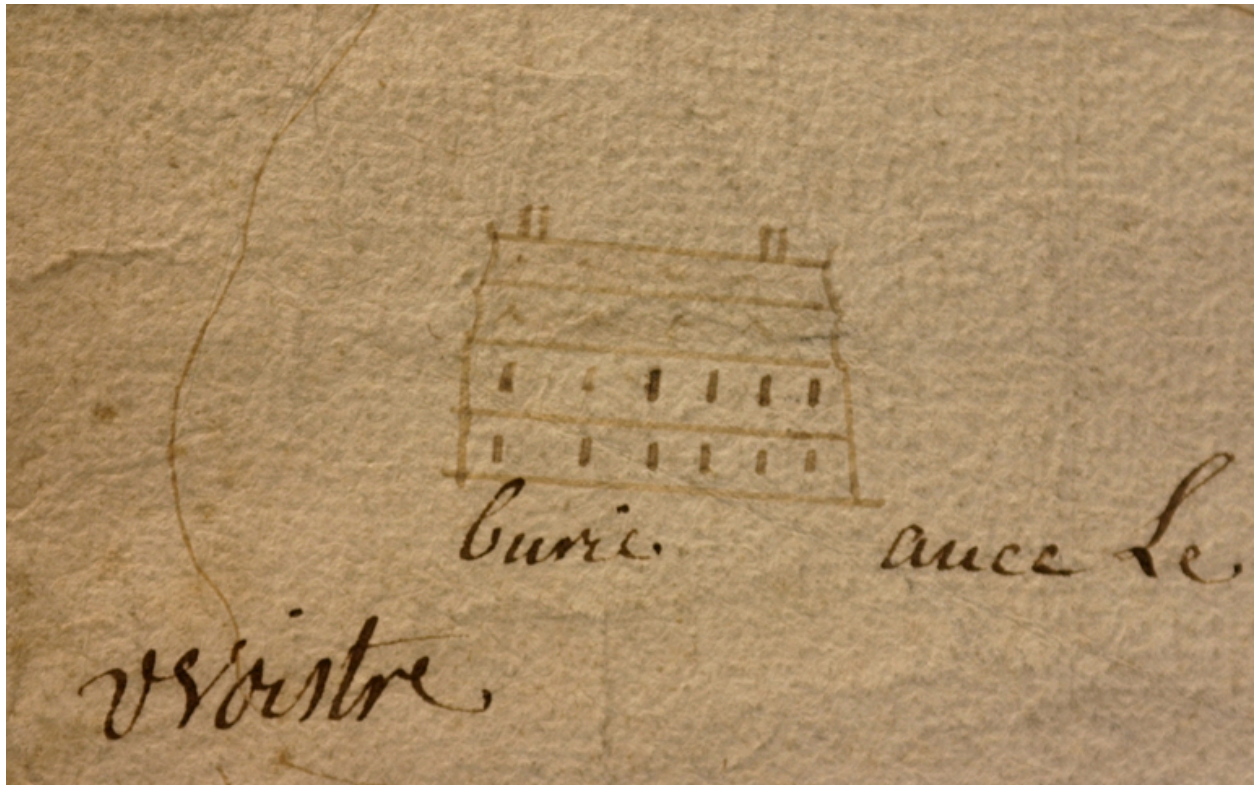 burie. auec Le
vvoistre